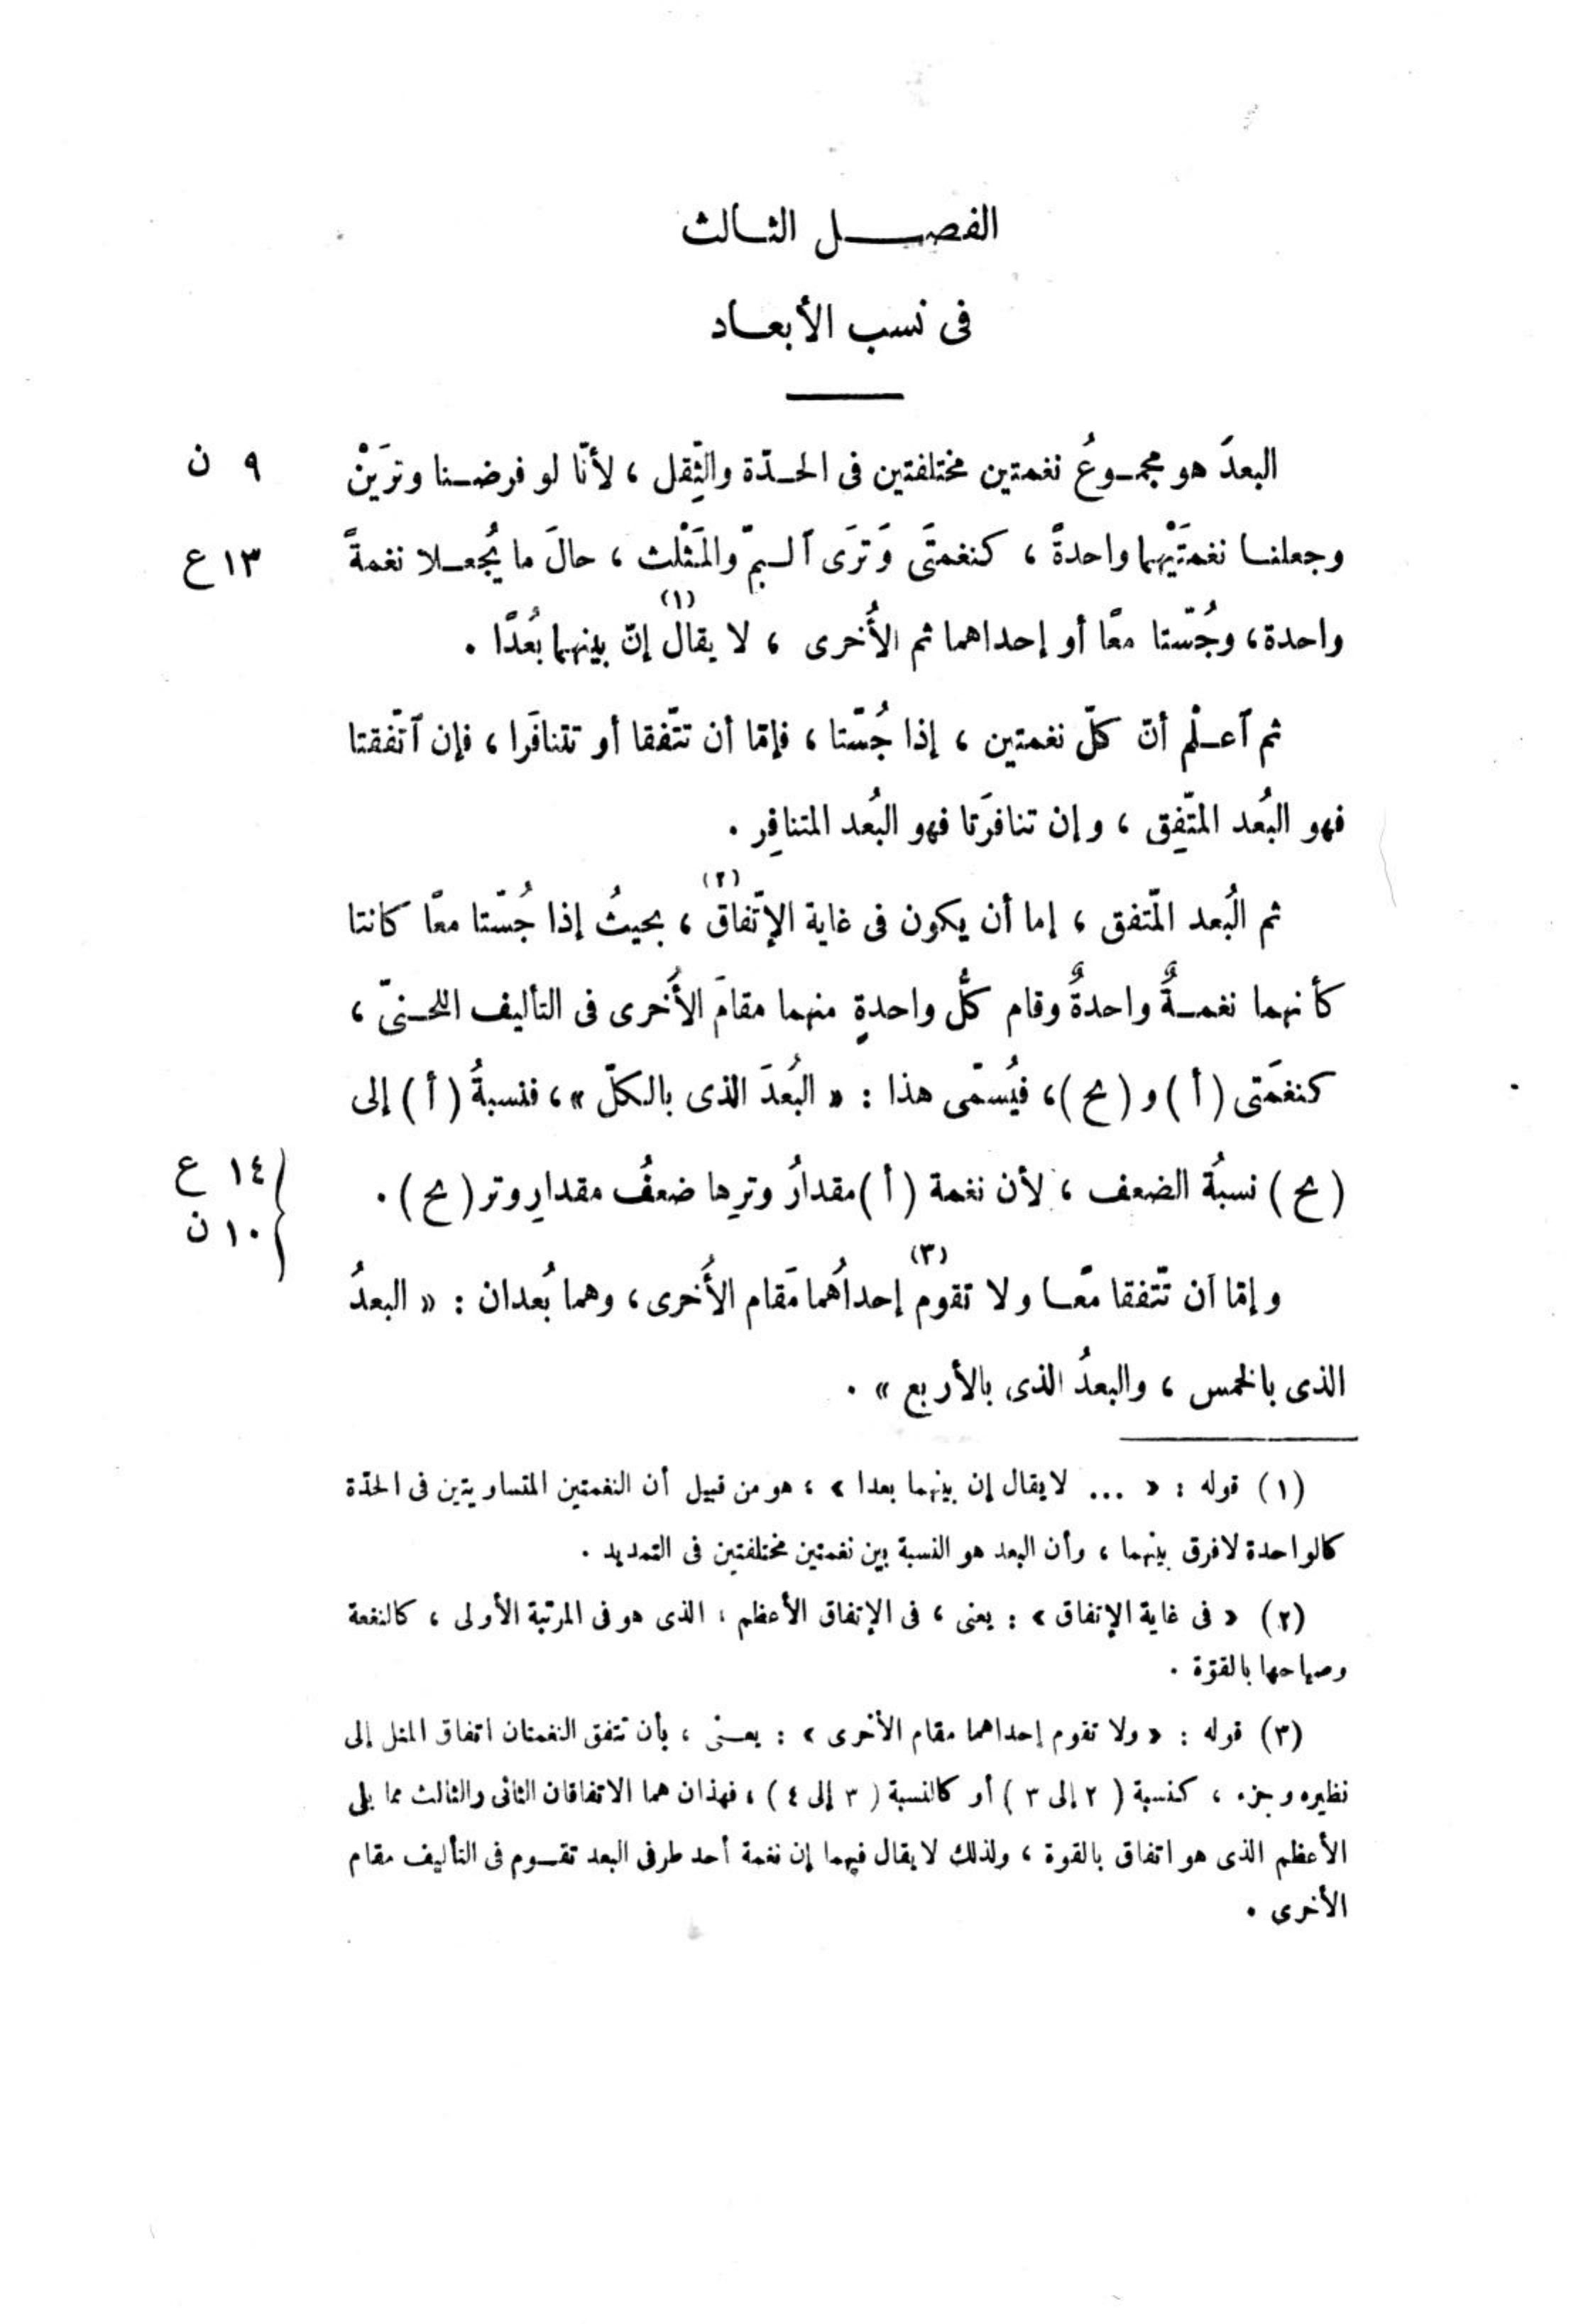 الفصل الثالث
فى نسب الأبعاد
البعدَ هو مجموعُ نغمتين مختلفتين فى الحدّة والثِّقل ، لأنّا لو فرضنا وترَيْن
٩ ن
وجعلنا نغمتَيْهما واحدةً ، كنغمتَى وَترَى ٱلبمّ والمَثْلث ، حالَ ما يُجعلا نغمةً
١٣ ع
واحدة، وجُسّتا معًا أو إحداهما ثم الأُخرى ، لا يقال (١) إنّ بينهما بُعدًا .
ثم ٱعلْم أنّ كلّ نغمتين ، إذا جُسّتا ، فإمّا أن تتّفقا أو تتنافَرا ، فإن ٱتّفقتا
فهو البُعد المتّفِق ، وإن تنافرَتا فهو البُعد المتنافِر .
ثم البُعد المتّفق ، إما أن يكون فى غاية الإتّفاق (٢) ، بحيثُ إذا جُسّتا معًا كانتا
كأنهما نغمةٌ واحدةٌ وقام كلُّ واحدةٍ منهما مقامَ الأُخرى فى التأليف اللحنىّ ،
كنغمَتى (أ) و (يح)، فيُسمّى هذا : « البُعدَ الذى بالكلّ »، فنسبةُ (أ) إلى
(يح) نسبةُ الضعف ، لأن نغمة (أ) مقدارُ وترِها ضعفُ مقدارِ وتر (يح) .
١٤ ع
١٠ ن
وإمّا أن تتّفقا معًا ولا تقوم (٣) إحداهُما مَقام الأُخرى، وهما بُعدان : « البعدُ
الذى بالخمس ، والبعدُ الذى بالأربع » .
(١) قوله : « ... لا يقال إن بينهما بعدا » ، هو من قبيل أن النغمتين المتساويتين فى الحدّة
كالواحدة لا فرق بينهما ، وأن البعد هو النسبة بين نغمتين مختلفتين فى التمديد .
(٢) « فى غاية الإتفاق » : يعنى ، فى الإتفاق الأعظم ، الذى هو فى المرتبة الأولى ، كالنغمة
وصياحها بالقوّة .
(٣) قوله : « ولا تقوم إحداهما مقام الأخرى » : يعنى ، بأن تتفق النغمتان اتفاق المثل إلى
نظيره وجزء ، كنسبة (٢ إلى ٣) أو كالنسبة (٣ إلى ٤) ، فهذان هما الاتفاقان الثانى والثالث مما يلى
الأعظم الذى هو اتفاق بالقوة ، ولذلك لا يقال فيهما إن نغمة أحد طرفى البعد تقوم فى التأليف مقام
الأخرى .